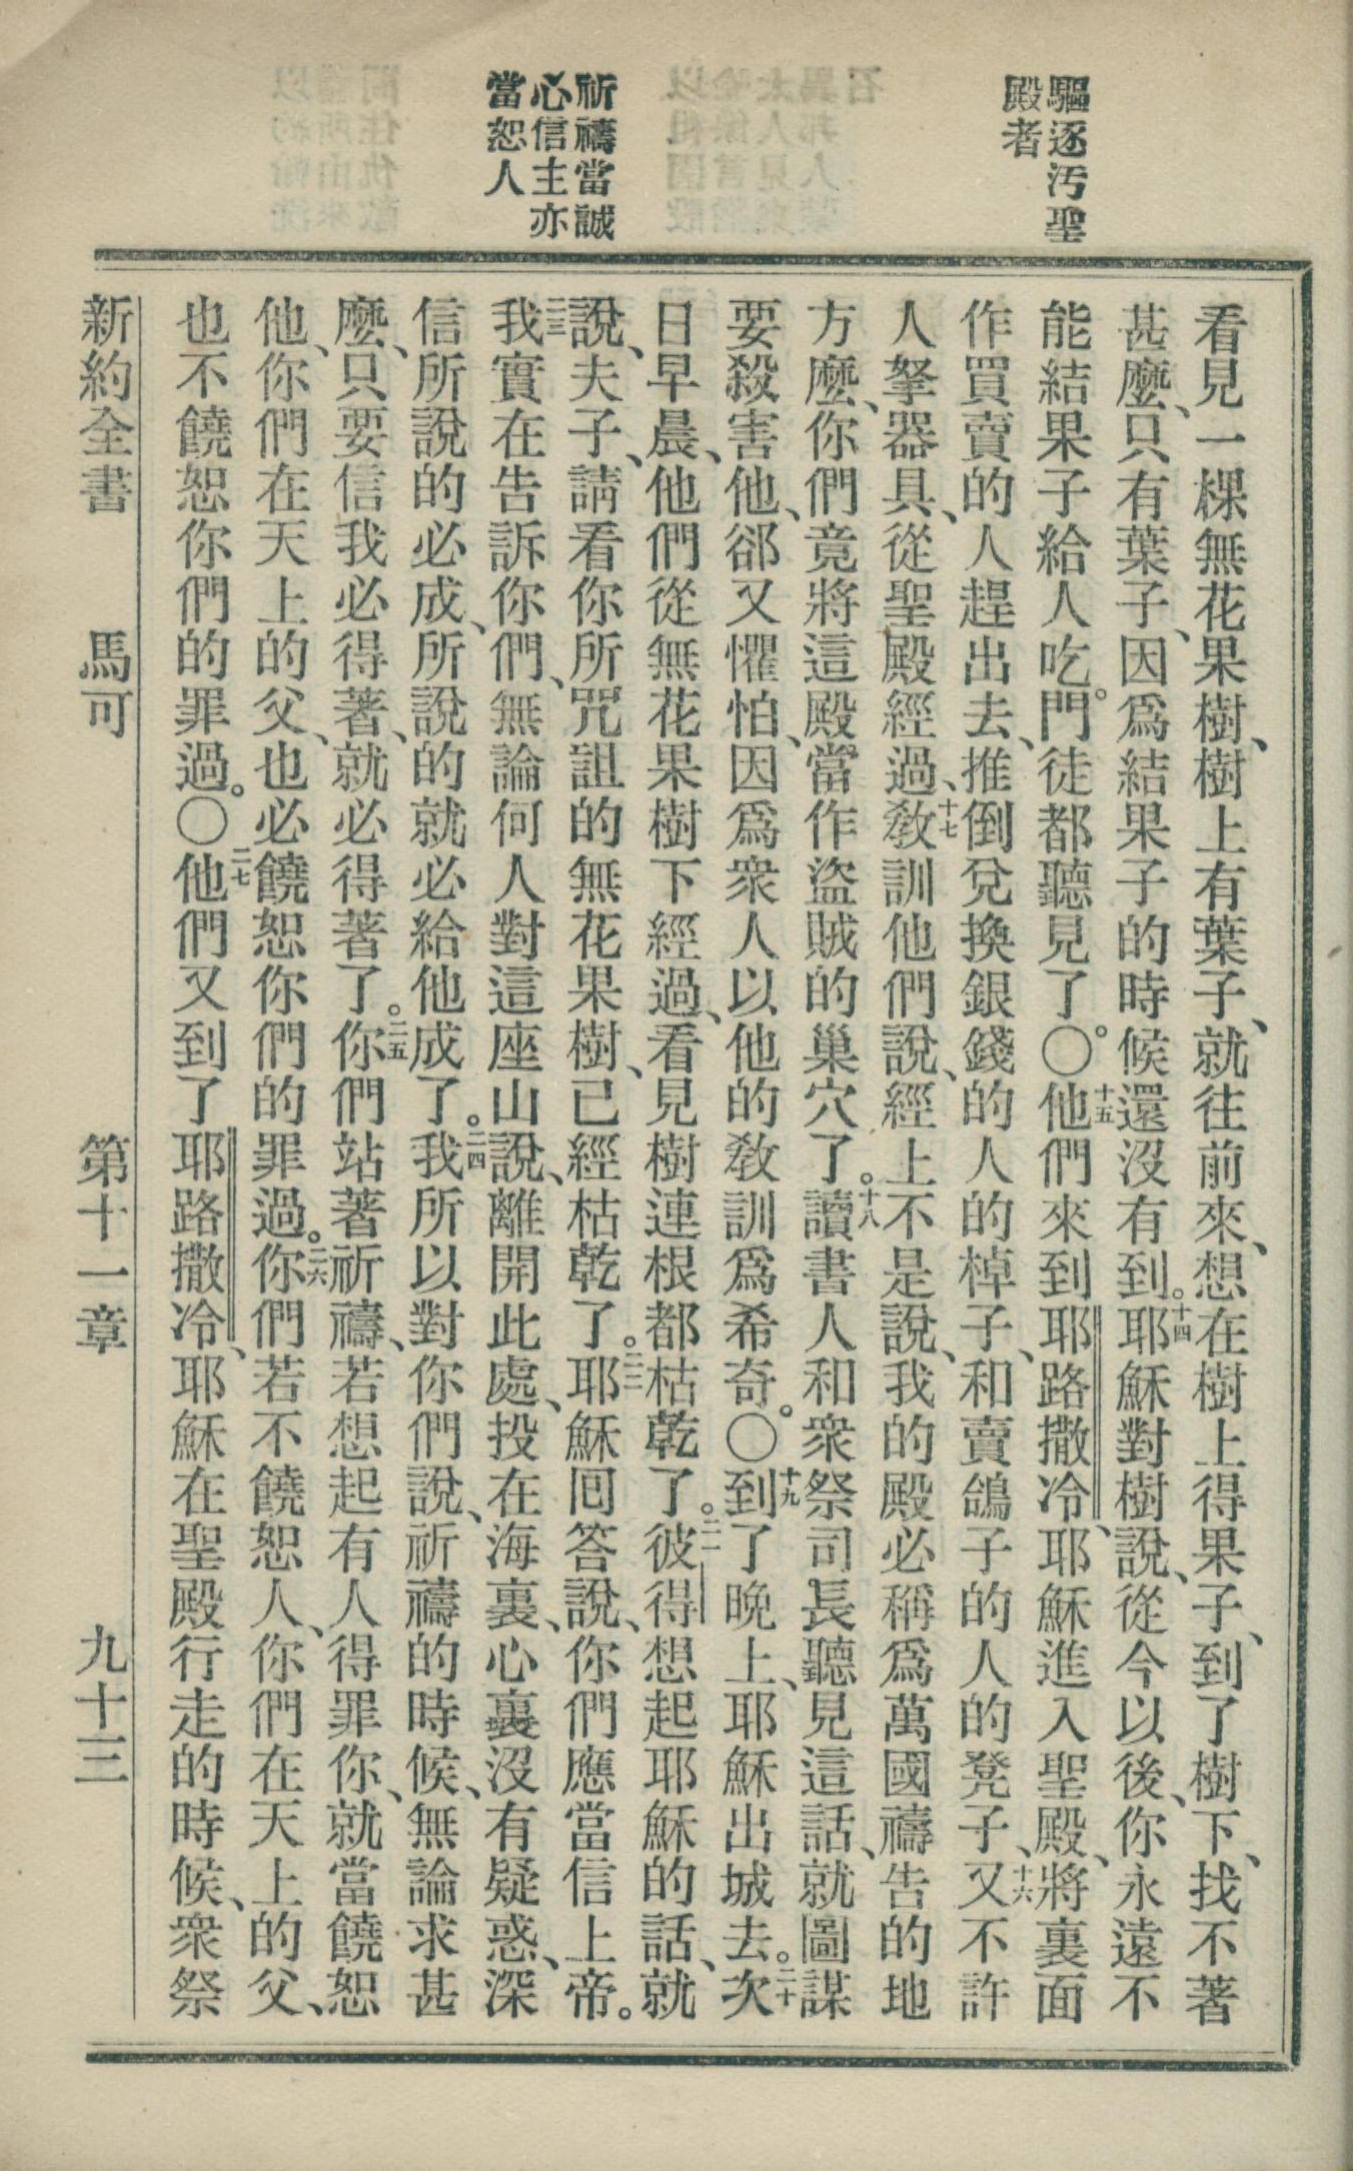 驅逐汚聖
殿者
祈禱當誠
心信主亦
當恕人
看見一棵無花果樹、樹上有葉子、就往前來、想在樹上得果子、到了樹下、找不著
甚麼、只有葉子、因爲結果子的時候還沒有到。十四耶穌對樹說、從今以後、你永遠不
能結果子給人吃。門徒都聽見了。〇十五他們來到耶路撒冷、耶穌進入聖殿、將裏面
作買賣的人趕出去、推倒兌換銀錢的人的棹子、和賣鴿子的人的凳子、十六又不許
人拏器具、從聖殿經過、十七敎訓他們說、經上不是說、我的殿必稱爲萬國禱告的地
方麼、你們竟將這殿當作盜賊的巢穴了。十八讀書人和衆祭司長聽見這話、就圖謀
要殺害他、郤又懼怕、因爲衆人以他的敎訓爲希奇。〇十九到了晚上、耶穌出城去。二十次
日早晨、他們從無花果樹下經過、看見樹連根都枯乾了。二一彼得想起耶穌的話、就
說、夫子、請看你所咒詛的無花果樹、已經枯乾了。二二耶穌囘答說、你們應當信上帝。
二三我實在告訴你們、無論何人對這座山說、離開此處、投在海裏、心裏沒有疑惑、深
信所說的必成、所說的就必給他成了。二四我所以對你們說、祈禱的時候、無論求甚
麼、只要信我必得著、就必得著了。二五你們站著祈禱、若想起有人得罪你、就當饒恕
他、你們在天上的父、也必饒恕你們的罪過。二六你們若不饒恕人、你們在天上的父、
也不饒恕你們的罪過。〇二七他們又到了耶路撒冷、耶穌在聖殿行走的時候、衆祭
新約全書 馬可 第十一章 九十三